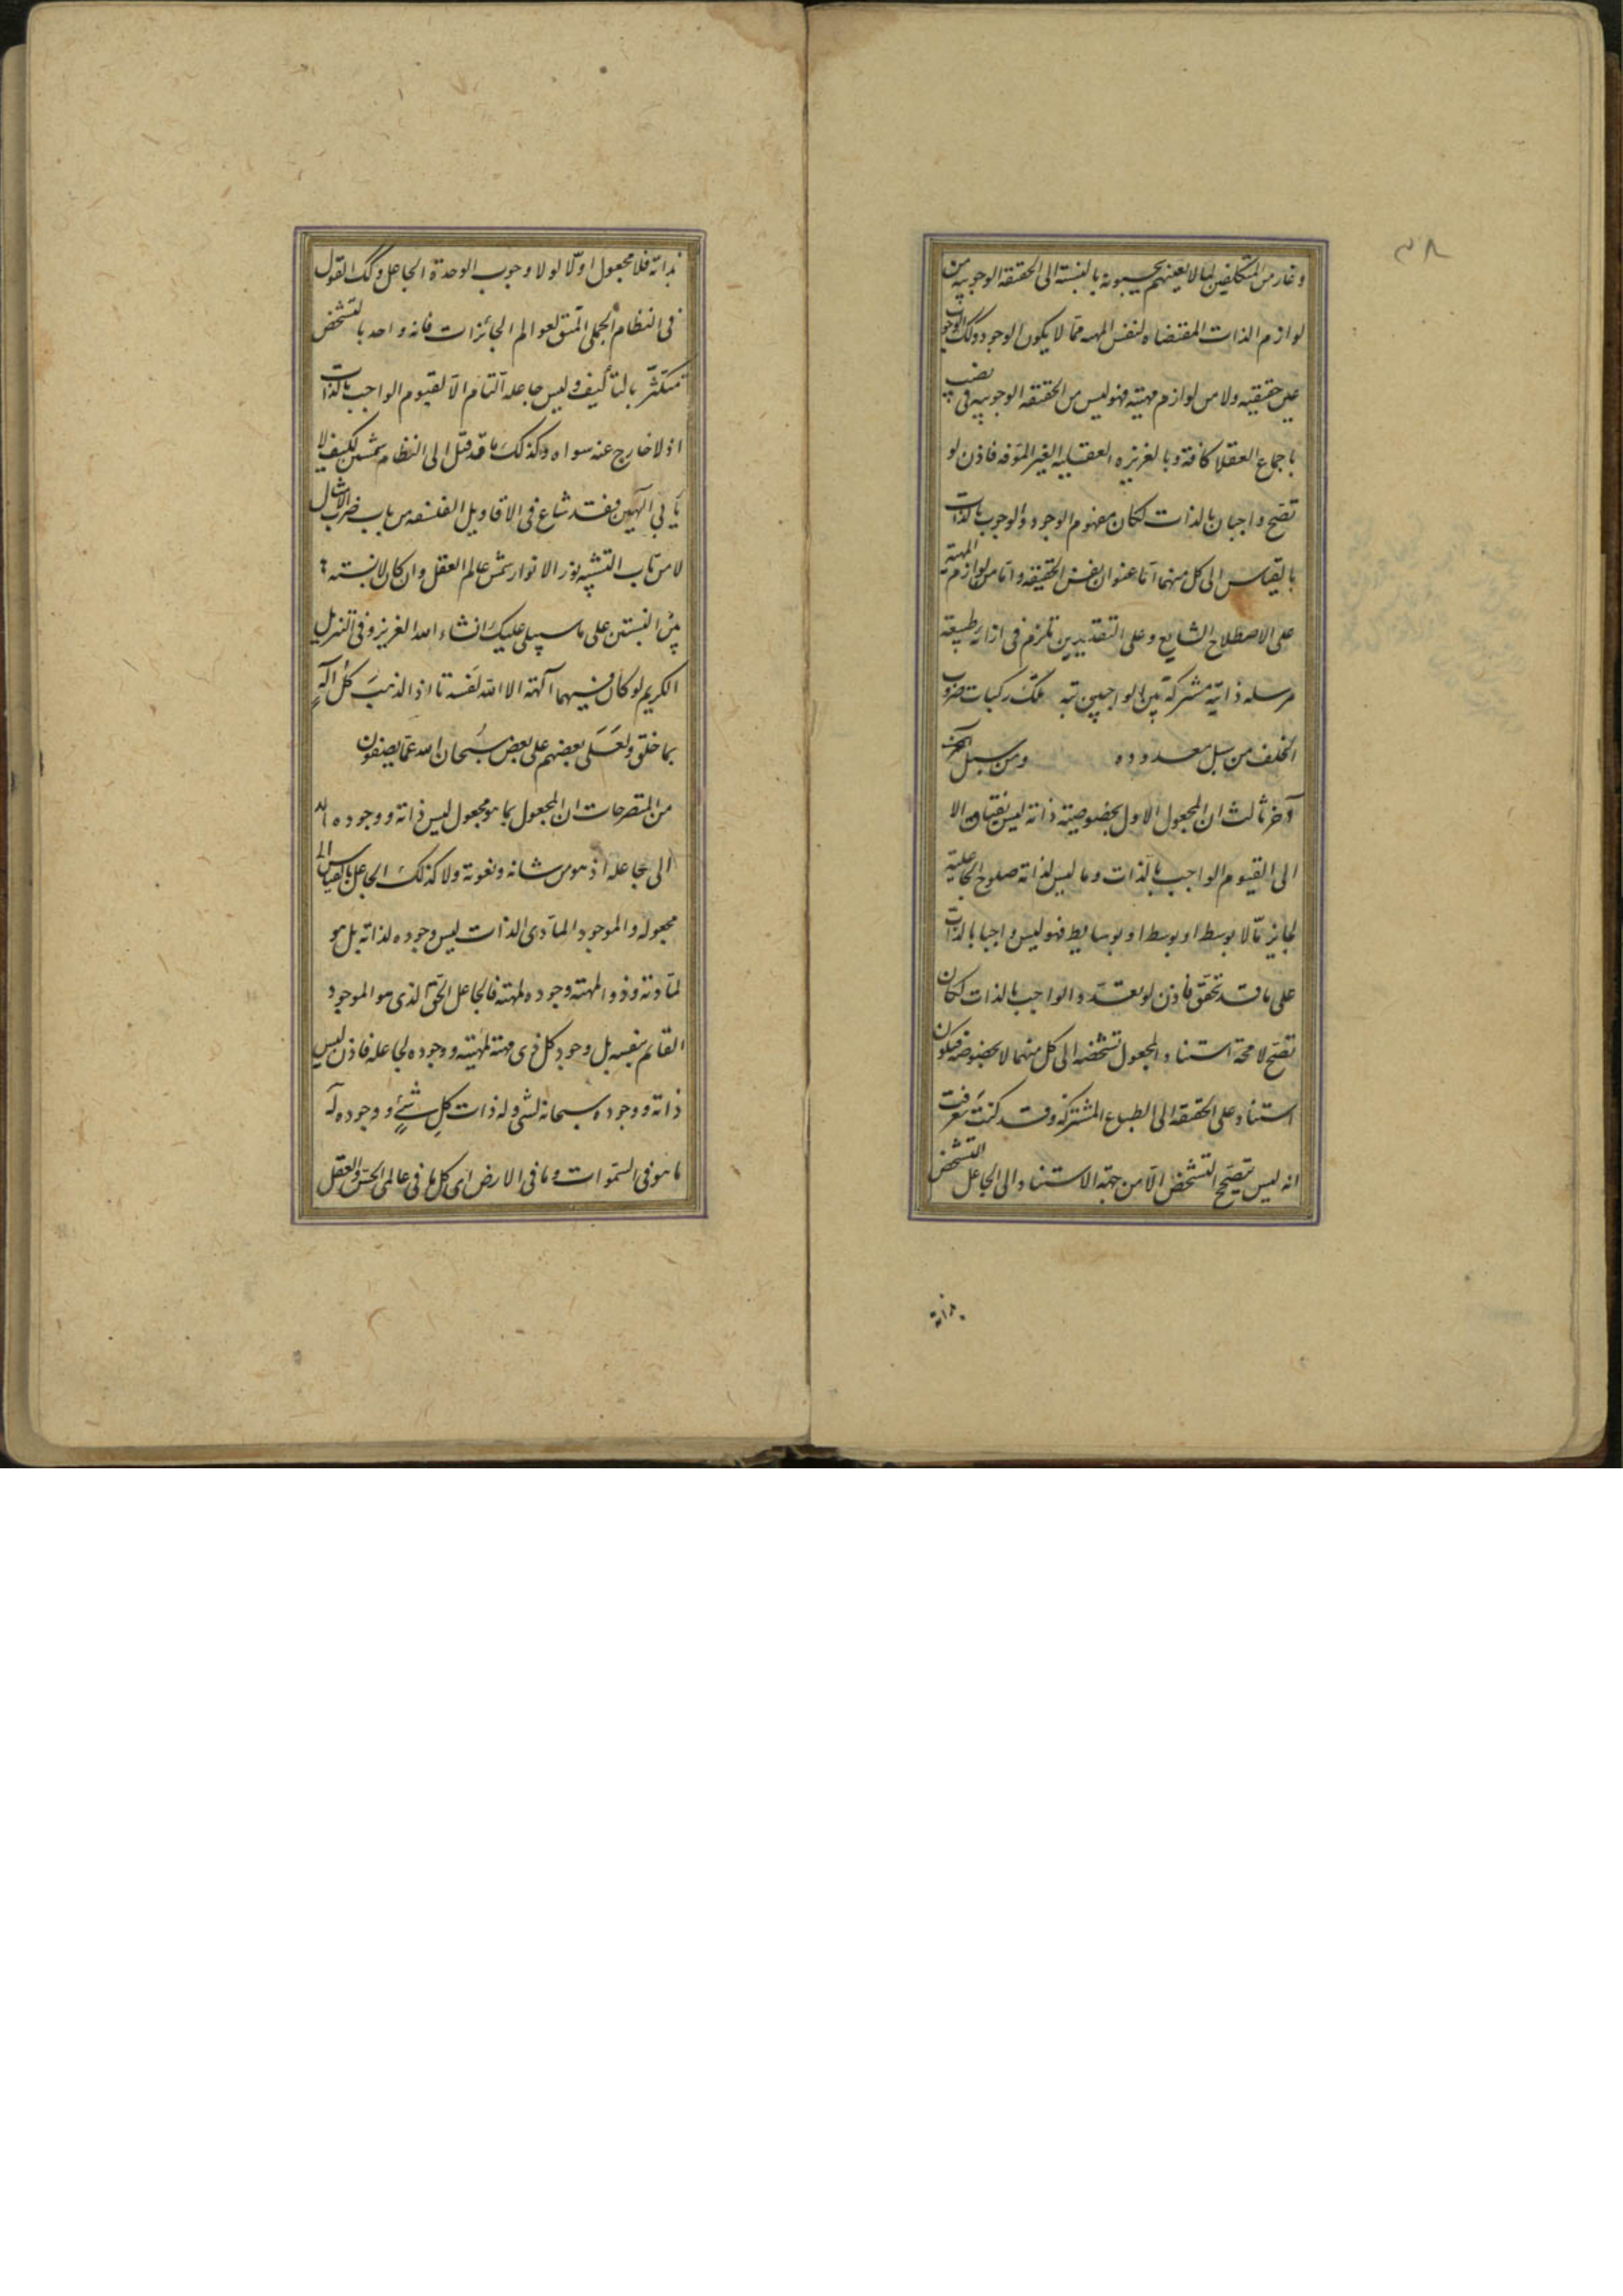 ٣٨
وغار من المتكلفين لما لا يعنيهم يحسبونه بالنسبة الى الحقيقة الوجوبيه من
لوازم الذات المقتضاه لنفس المهيه مما لا يكون الوجود وكك الوجوب
عين حقيقيه ولا من لوازم مهيته فهوليس من الحقيقه الوجوبيه فى نصيب
باجماع العقلا كافة وبالغريزه العقليه الغير المؤفه فاذن لو
تصح واجبان بالذات لكان مفهوم الوجود والوجوب بالذات
بالقياس الى كل منهما اما عنوان نفس الحقيقه واما من لوازم المهية
على الاصطلاح الشايع وعلى التقديرين تلزم فى ازائه طبيعة
مرسله ذاتيه مشتركة بين الواجبين تبه عنك ركبات ضروب
الخلف من سبل معدوده ومن سبيل
آخر ثالث ان المجعول الاول بخصوصية ذاته ليس يفتاق الا
الى القيوم الواجب بالذات وما ليس لذاته صلوح الجاعلية
لجايز ما لا بوسط او بوسط او بوسايط فهوليس واجبا بالذات
على ما قد تحقق فاذن لو تعدد الواجب بالذات لكان
تصح لا محة استناد المجعول تشخصه الى كل منهما لا بخصوصه فيكون
استناد على الحقيقه الى الطباع المشتركه وقد كنت تعرفت
انه ليس تصح التشخص الا من جهة الاستناد الى الجاعل التشخص
بذاته
بذاته فلا مجعول اولا لولا وجوب الوحدة الجاعل وكك القول
فى النظام الجملى المتسق لعوالم الجائزات فانه واحد بالتشخص
متكثر بالتأليف وليس جاعله التام الا القيوم الواجب بالذات
اذ لا خارج عنه سواه وكذلك ما قد قيل الى النظام شمسين فكيف لا
يأبى آلهين فقد شاع فى الاقاويل الفلسفه من باب ضرب الامثال
لا من باب التشبيه نور الانوار شمس عالم العقل وان كان لا نسبته
بين النسبتين على ما سيتلى عليك انشاء الله العزيز وفى التنزيل
الكريم لو كان فيهما آلهة الا الله لفسدتا اذا لذهب كل اله
بما خلق ولعلى بعضهم على بعض سبحان الله عما يصفون
من المتصرحات ان المجعول بما هو مجعول ليس ذاته ووجوده الا
الى جاعله اذ هو من شانه ونعوته ولا كذلك الجاعل بالقياس الى
مجعوله والموجود المادى الذات ليس وجوده لذاته بل هو
لمادته وذو المهيته وجوده لمهيته فالجاعل الحق الذى هو الموجود
القائم بنفسه بل وجود كل ذى مهية لمهيته ووجوده لجاعله فاذن ليس
ذاته ووجوده سبحانه لشى وله ذات كل شئ ووجوده له
ما هو فى السموات وما فى الارض اى كل ما فى عالمى الحس والعقل